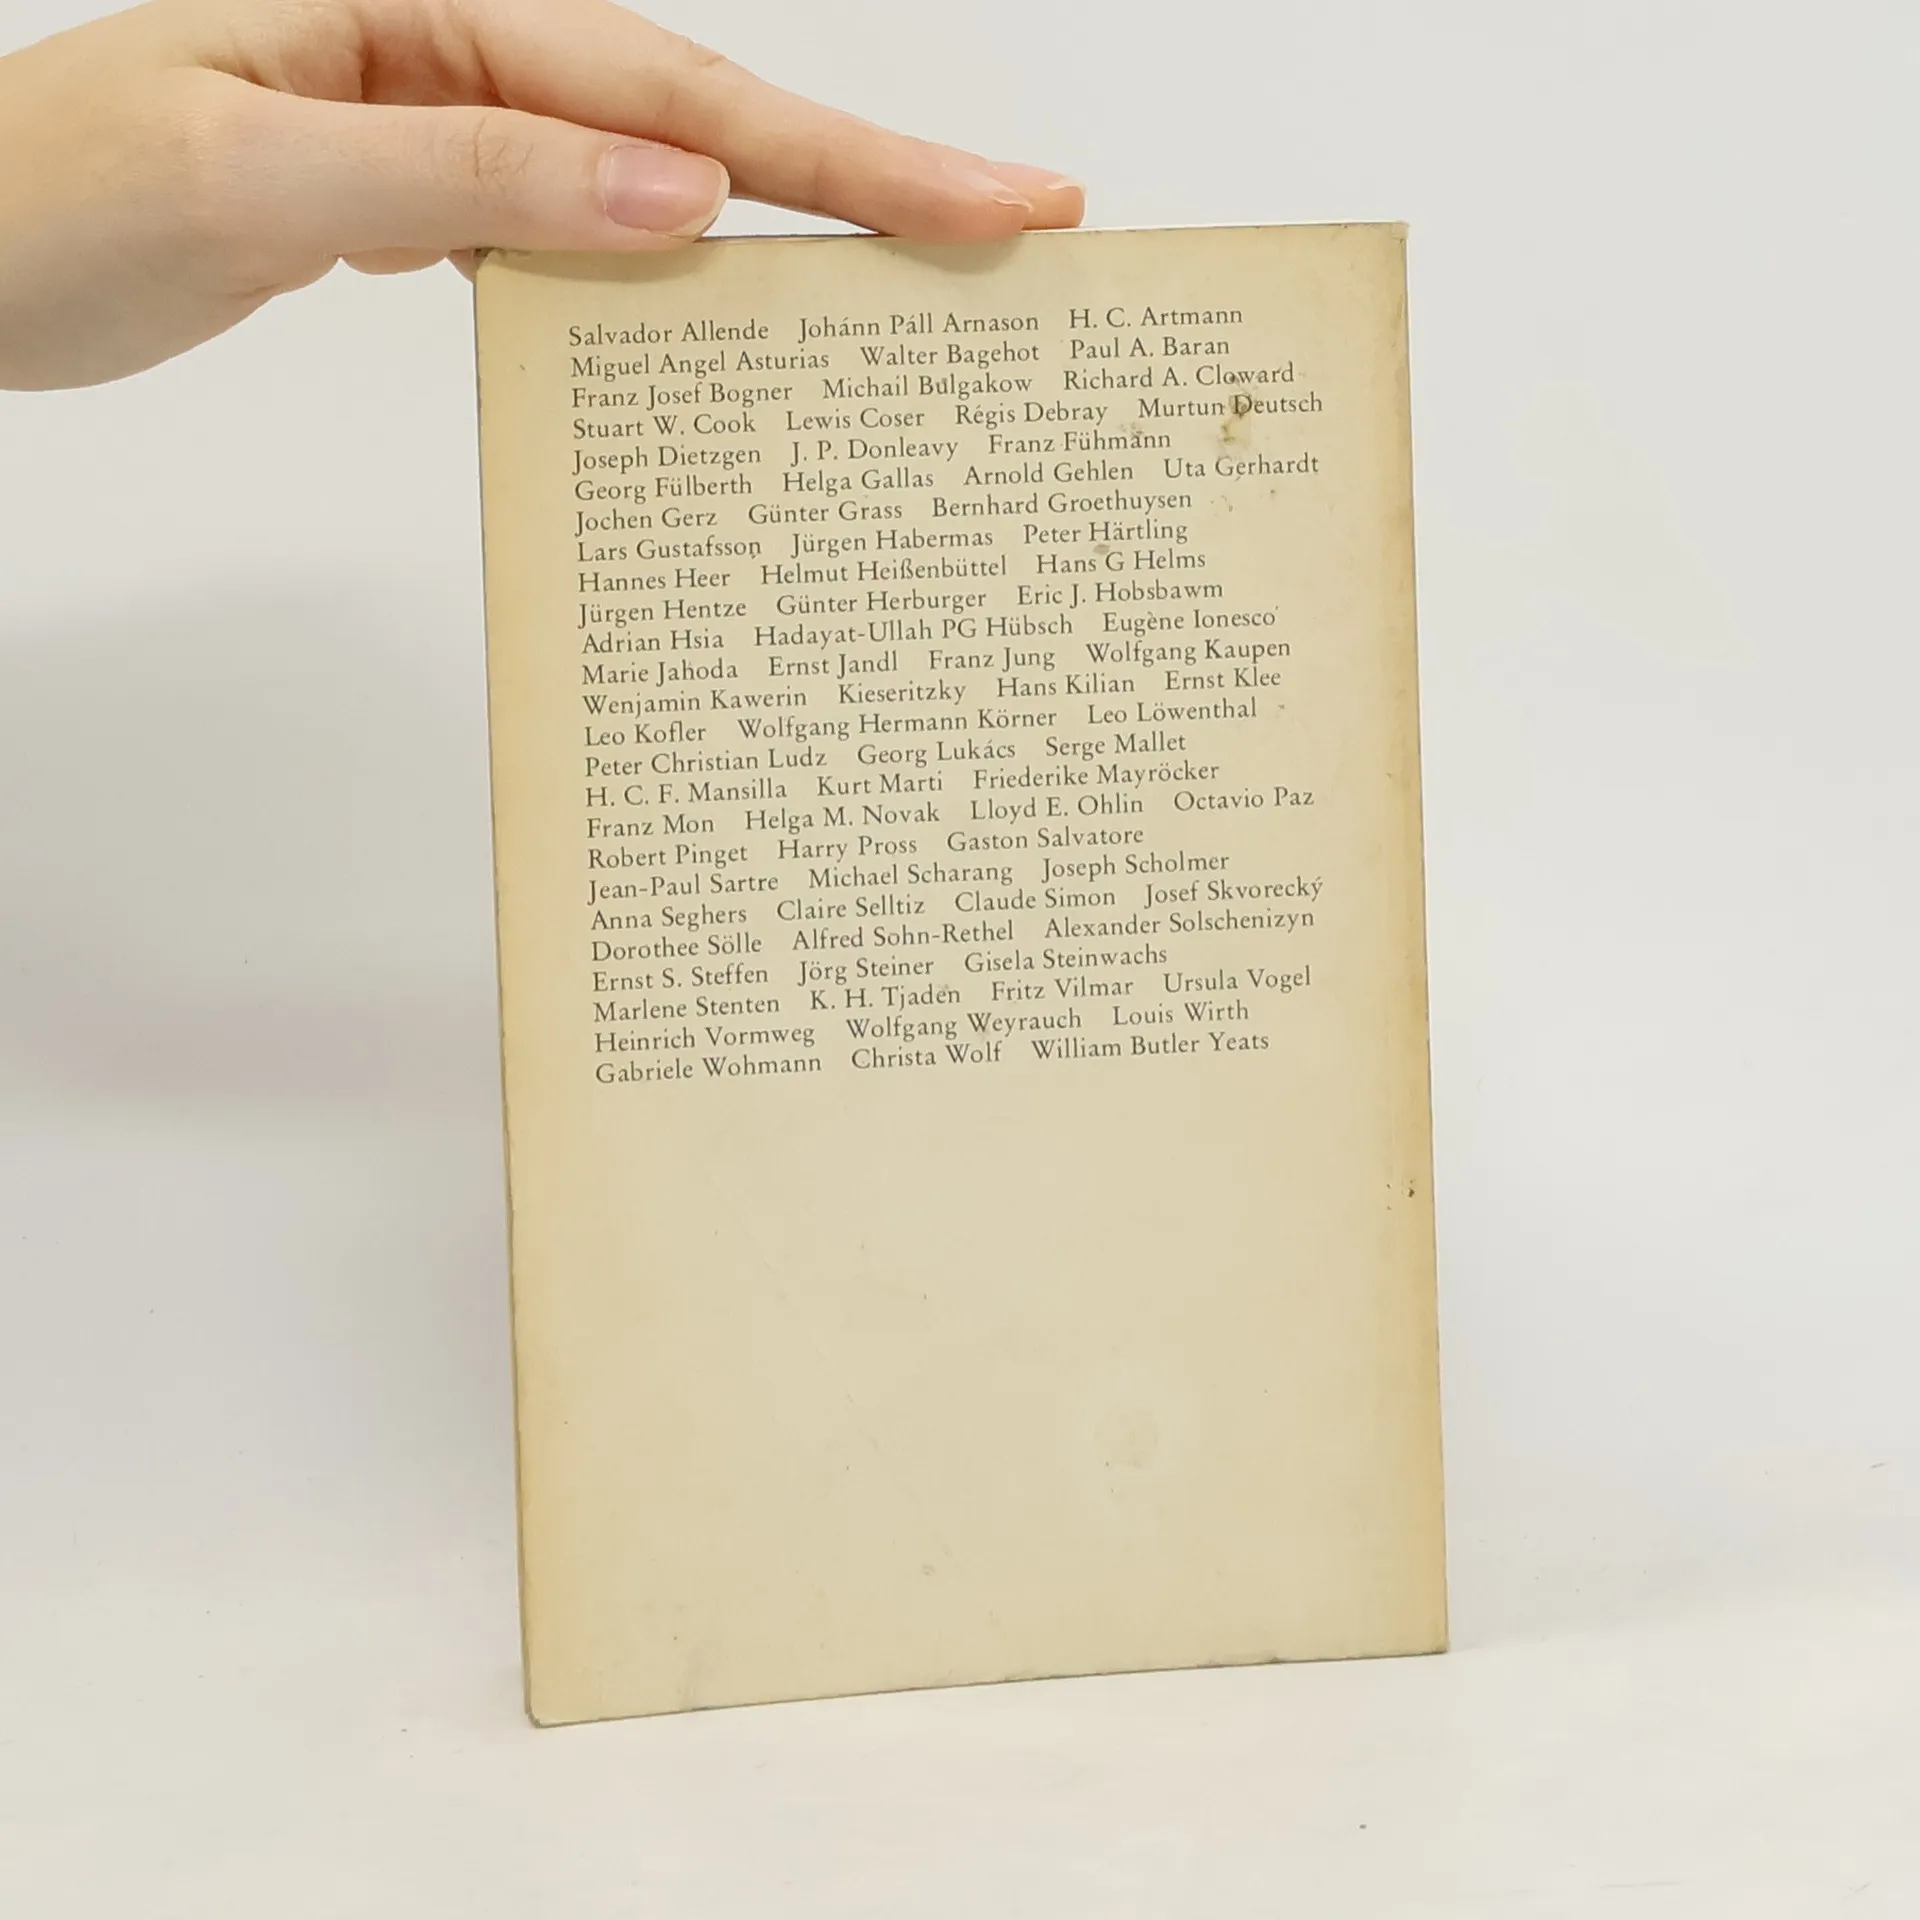 Salvador Allende Johánn Páll Arnason H. C. Artmann
Miguel Angel Asturias Walter Bagehot Paul A. Baran
Franz Josef Bogner Michail Bulgakow Richard A. Cloward
Stuart W. Cook Lewis Coser Régis Debray Murtun Deutsch
Joseph Dietzgen J. P. Donleavy Franz Fühmann
Georg Fülberth Helga Gallas Arnold Gehlen Uta Gerhardt
Jochen Gerz Günter Grass Bernhard Groethuysen
Lars Gustafsson Jürgen Habermas Peter Härtling
Hannes Heer Helmut Heißenbüttel Hans G Helms
Jürgen Hentze Günter Herburger Eric J. Hobsbawm
Adrian Hsia Hadayat-Ullah PG Hübsch Eugène Ionesco
Marie Jahoda Ernst Jandl Franz Jung Wolfgang Kaupen
Wenjamin Kawerin Kieseritzky Hans Kilian Ernst Klee
Leo Kofler Wolfgang Hermann Körner Leo Löwenthal
Peter Christian Ludz Georg Lukács Serge Mallet
H. C. F. Mansilla Kurt Marti Friederike Mayröcker
Franz Mon Helga M. Novak Lloyd E. Ohlin Octavio Paz
Robert Pinget Harry Pross Gaston Salvatore
Jean-Paul Sartre Michael Scharang Joseph Scholmer
Anna Seghers Claire Selltiz Claude Simon Josef Skvorecký
Dorothee Sölle Alfred Sohn-Rethel Alexander Solschenizyn
Ernst S. Steffen Jörg Steiner Gisela Steinwachs
Marlene Stenten K. H. Tjaden Fritz Vilmar Ursula Vogel
Heinrich Vormweg Wolfgang Weyrauch Louis Wirth
Gabriele Wohmann Christa Wolf William Butler Yeats